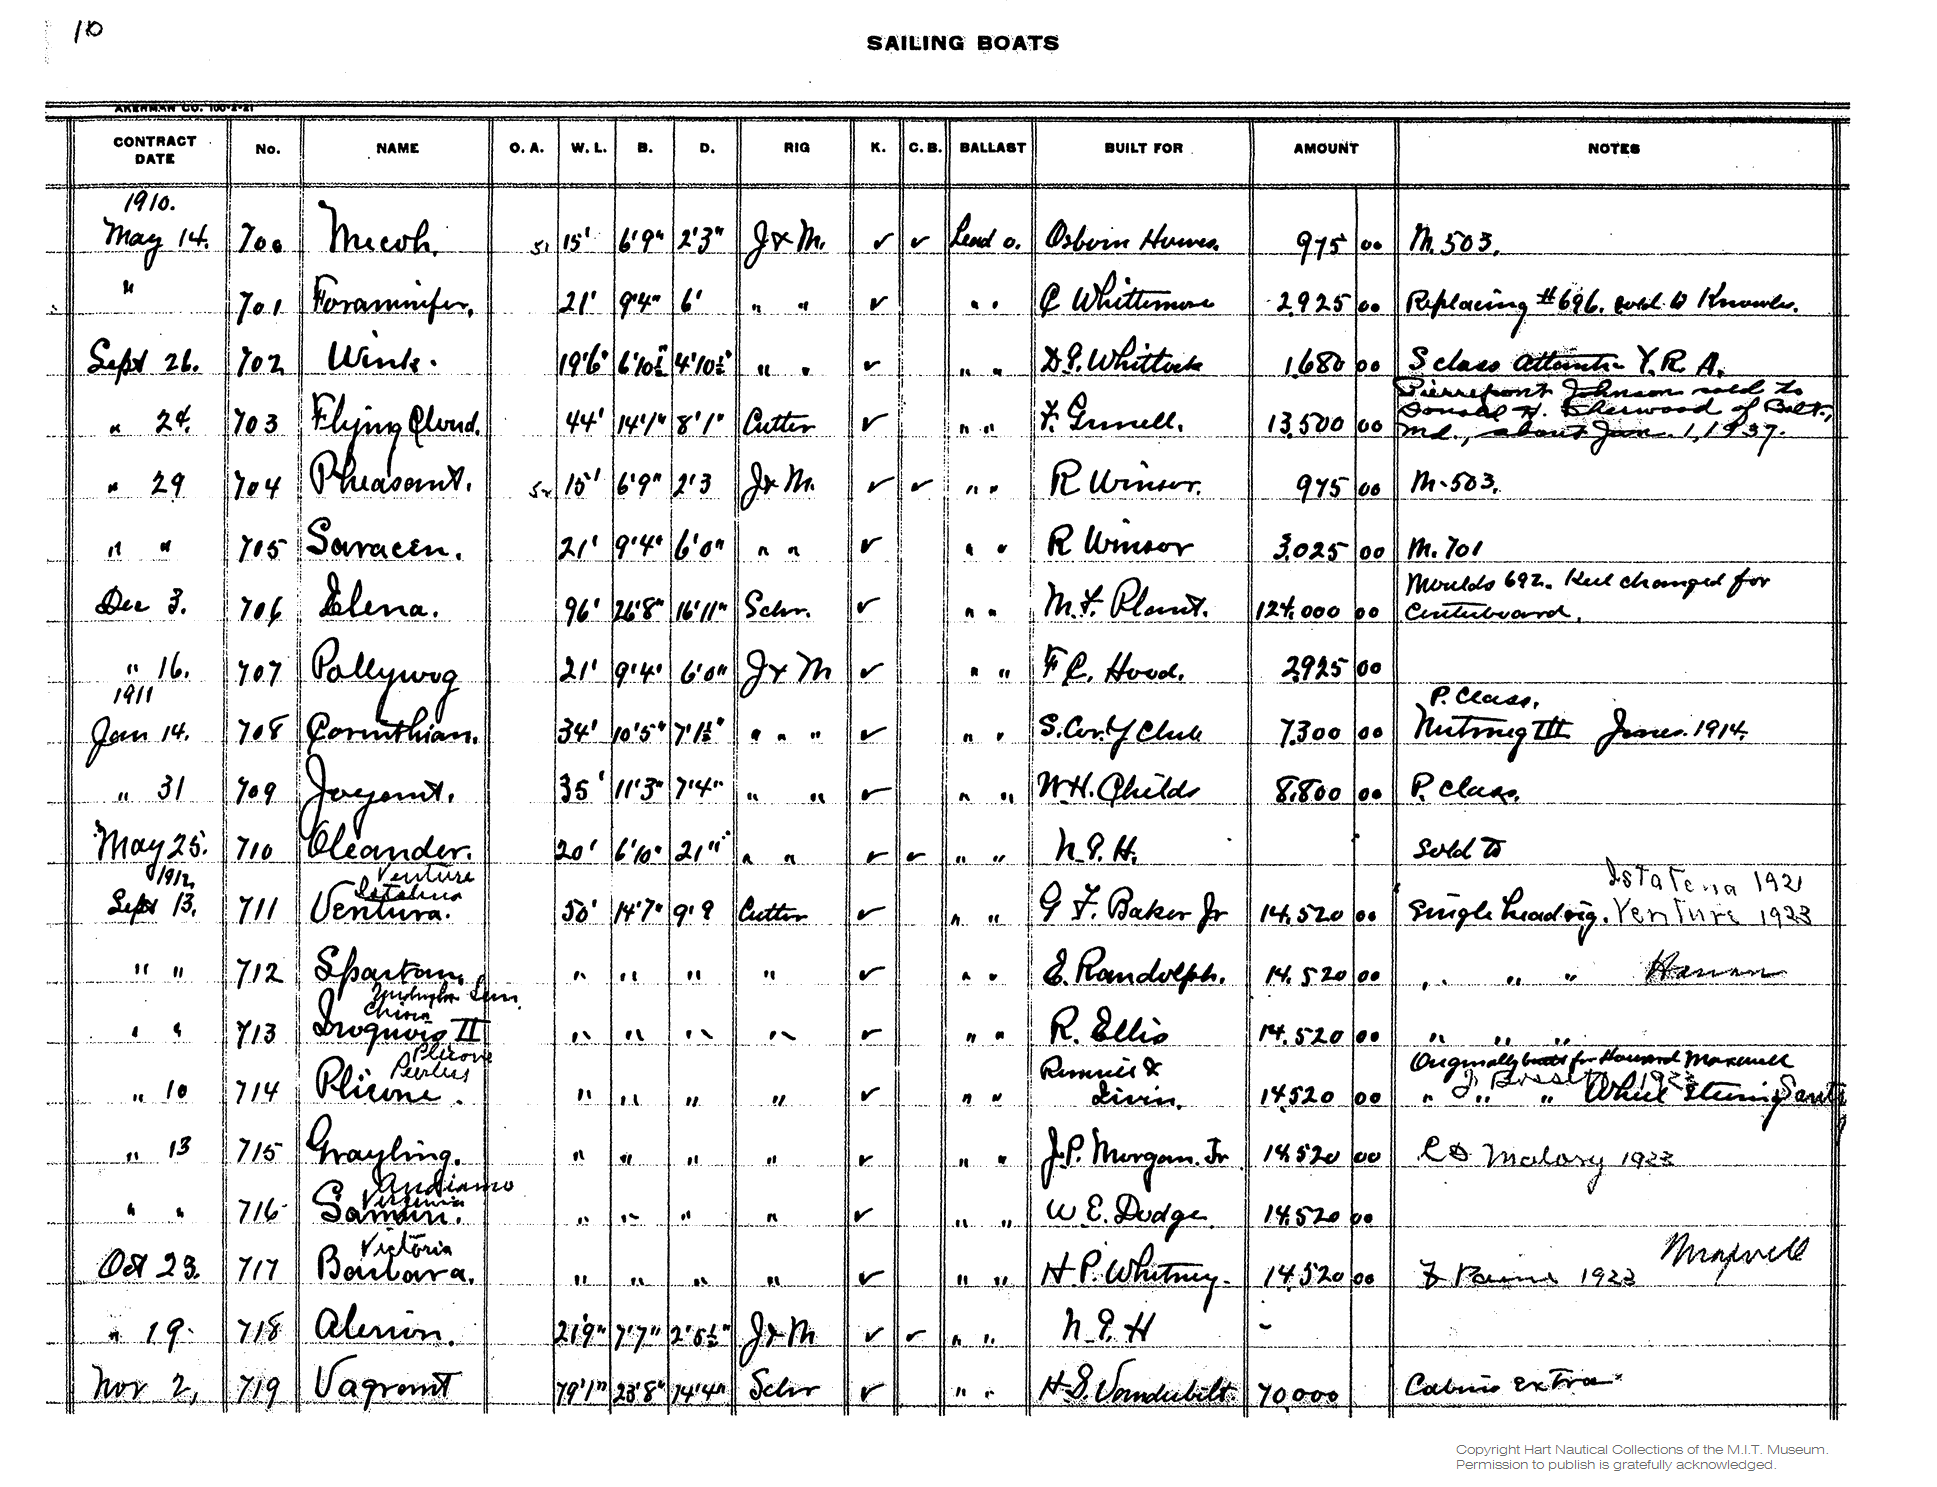 10
SAILING BOATS
AKERMAN CO. 100-2-21
CONTRACT DATE No. NAME O. A. W. L. B. D. RIG K. C. B. BALLAST BUILT FOR AMOUNT NOTES
1910.
May 14. 700 Micoh. 15' 6'9" 2'3" J & M. ✓ ✓ Lead o. Osborn Howes. 975 00 M. 503.
" 701 Foraminifer. 21' 9'4" 6' " " ✓ " " C Whittemore 2925 00 Replacing #696. sold to Knowles.
Sept 26. 702 Wink. 19'6" 6'10½" 4'10½" " " ✓ " " D.G. Whitlock 1,680 00 S class Atlantic Y. R. A.
Pierrepont Johnson sold to
" 24. 703 Flying Cloud. 44' 14'1" 8'1" Cutter ✓ " " F. Grinell. 13,500 00 Donald H. Sherwood of Balt.,
Md., about Jan. 1, 1937.
" 29 704 Pheasant. 15' 6'9" 2'3 J & M. ✓ ✓ " " R Winsor. 975 00 M-503.
" " 705 Saracen. 21' 9'4" 6'0" " " ✓ " " R Winsor 3,025 00 M. 701
Moulds 692. Keel changed for
Dec 3. 706 Elena. 96' 26'8" 16'11" Schr. ✓ " " M. F. Plant. 124,000 00 Centerboard.
" 16. 707 Pollywog 21' 9'4" 6'0" J & M ✓ " " F C. Hood. 2925 00
1911 P. Class.
Jan 14. 708 Corinthian. 34' 10'5" 7'1½" " " " ✓ " " S. Cor. Y Club 7,300 00 Nutmeg III Jones. 1914.
" 31 709 Joyant. 35' 11'3" 7'4" " " ✓ " " W.H. Childs 8,800 00 P. class.
May 25. 710 Oleander. 20' 6'10" 21" " " ✓ ✓ " " N. G. H. Sold to
1912. Venture
Istalena Istalena 1921
Sept 13. 711 Ventura. 50' 14'7" 9'9 Cutter ✓ " " G F. Baker Jr 14,520 00 Single head rig. Venture 1923
" " 712 Spartan. " " " " ✓ " " E. Randolph. 14,520 00 " " " Hanan
China
" " 713 Iroquois II " " " " ✓ " " R. Ellis 14,520 00 " " "
Plicone
Peerless Originally built for Howard Maxwell
" 10 714 Plicone. " " " " ✓ " " 14,520 00 " " " 1923 Wheel Steering
" 13 715 Grayling. " " " " ✓ " " J. P. Morgan. Jr 14,520 00 C D Malory 1923
Andiamo
Virginia
" " 716 Samuri. " " " " ✓ " " W E. Dodge. 14,520 00
Victoria Maxwell
Oct 23. 717 Barbara. " " " " ✓ " " H. P. Whitney. 14,520 00 F Paine 1923
" 19. 718 Alerion. 21'9" 7'7" 2'5½" J & M ✓ ✓ " " N. G. H -
Nov 2, 719 Vagrant 79'1" 23'8" 14'4" Schr ✓ " " H. S. Vanderbilt. 70,000 Cabins extra
Copyright Hart Nautical Collections of the M.I.T. Museum.
Permission to publish is gratefully acknowledged.